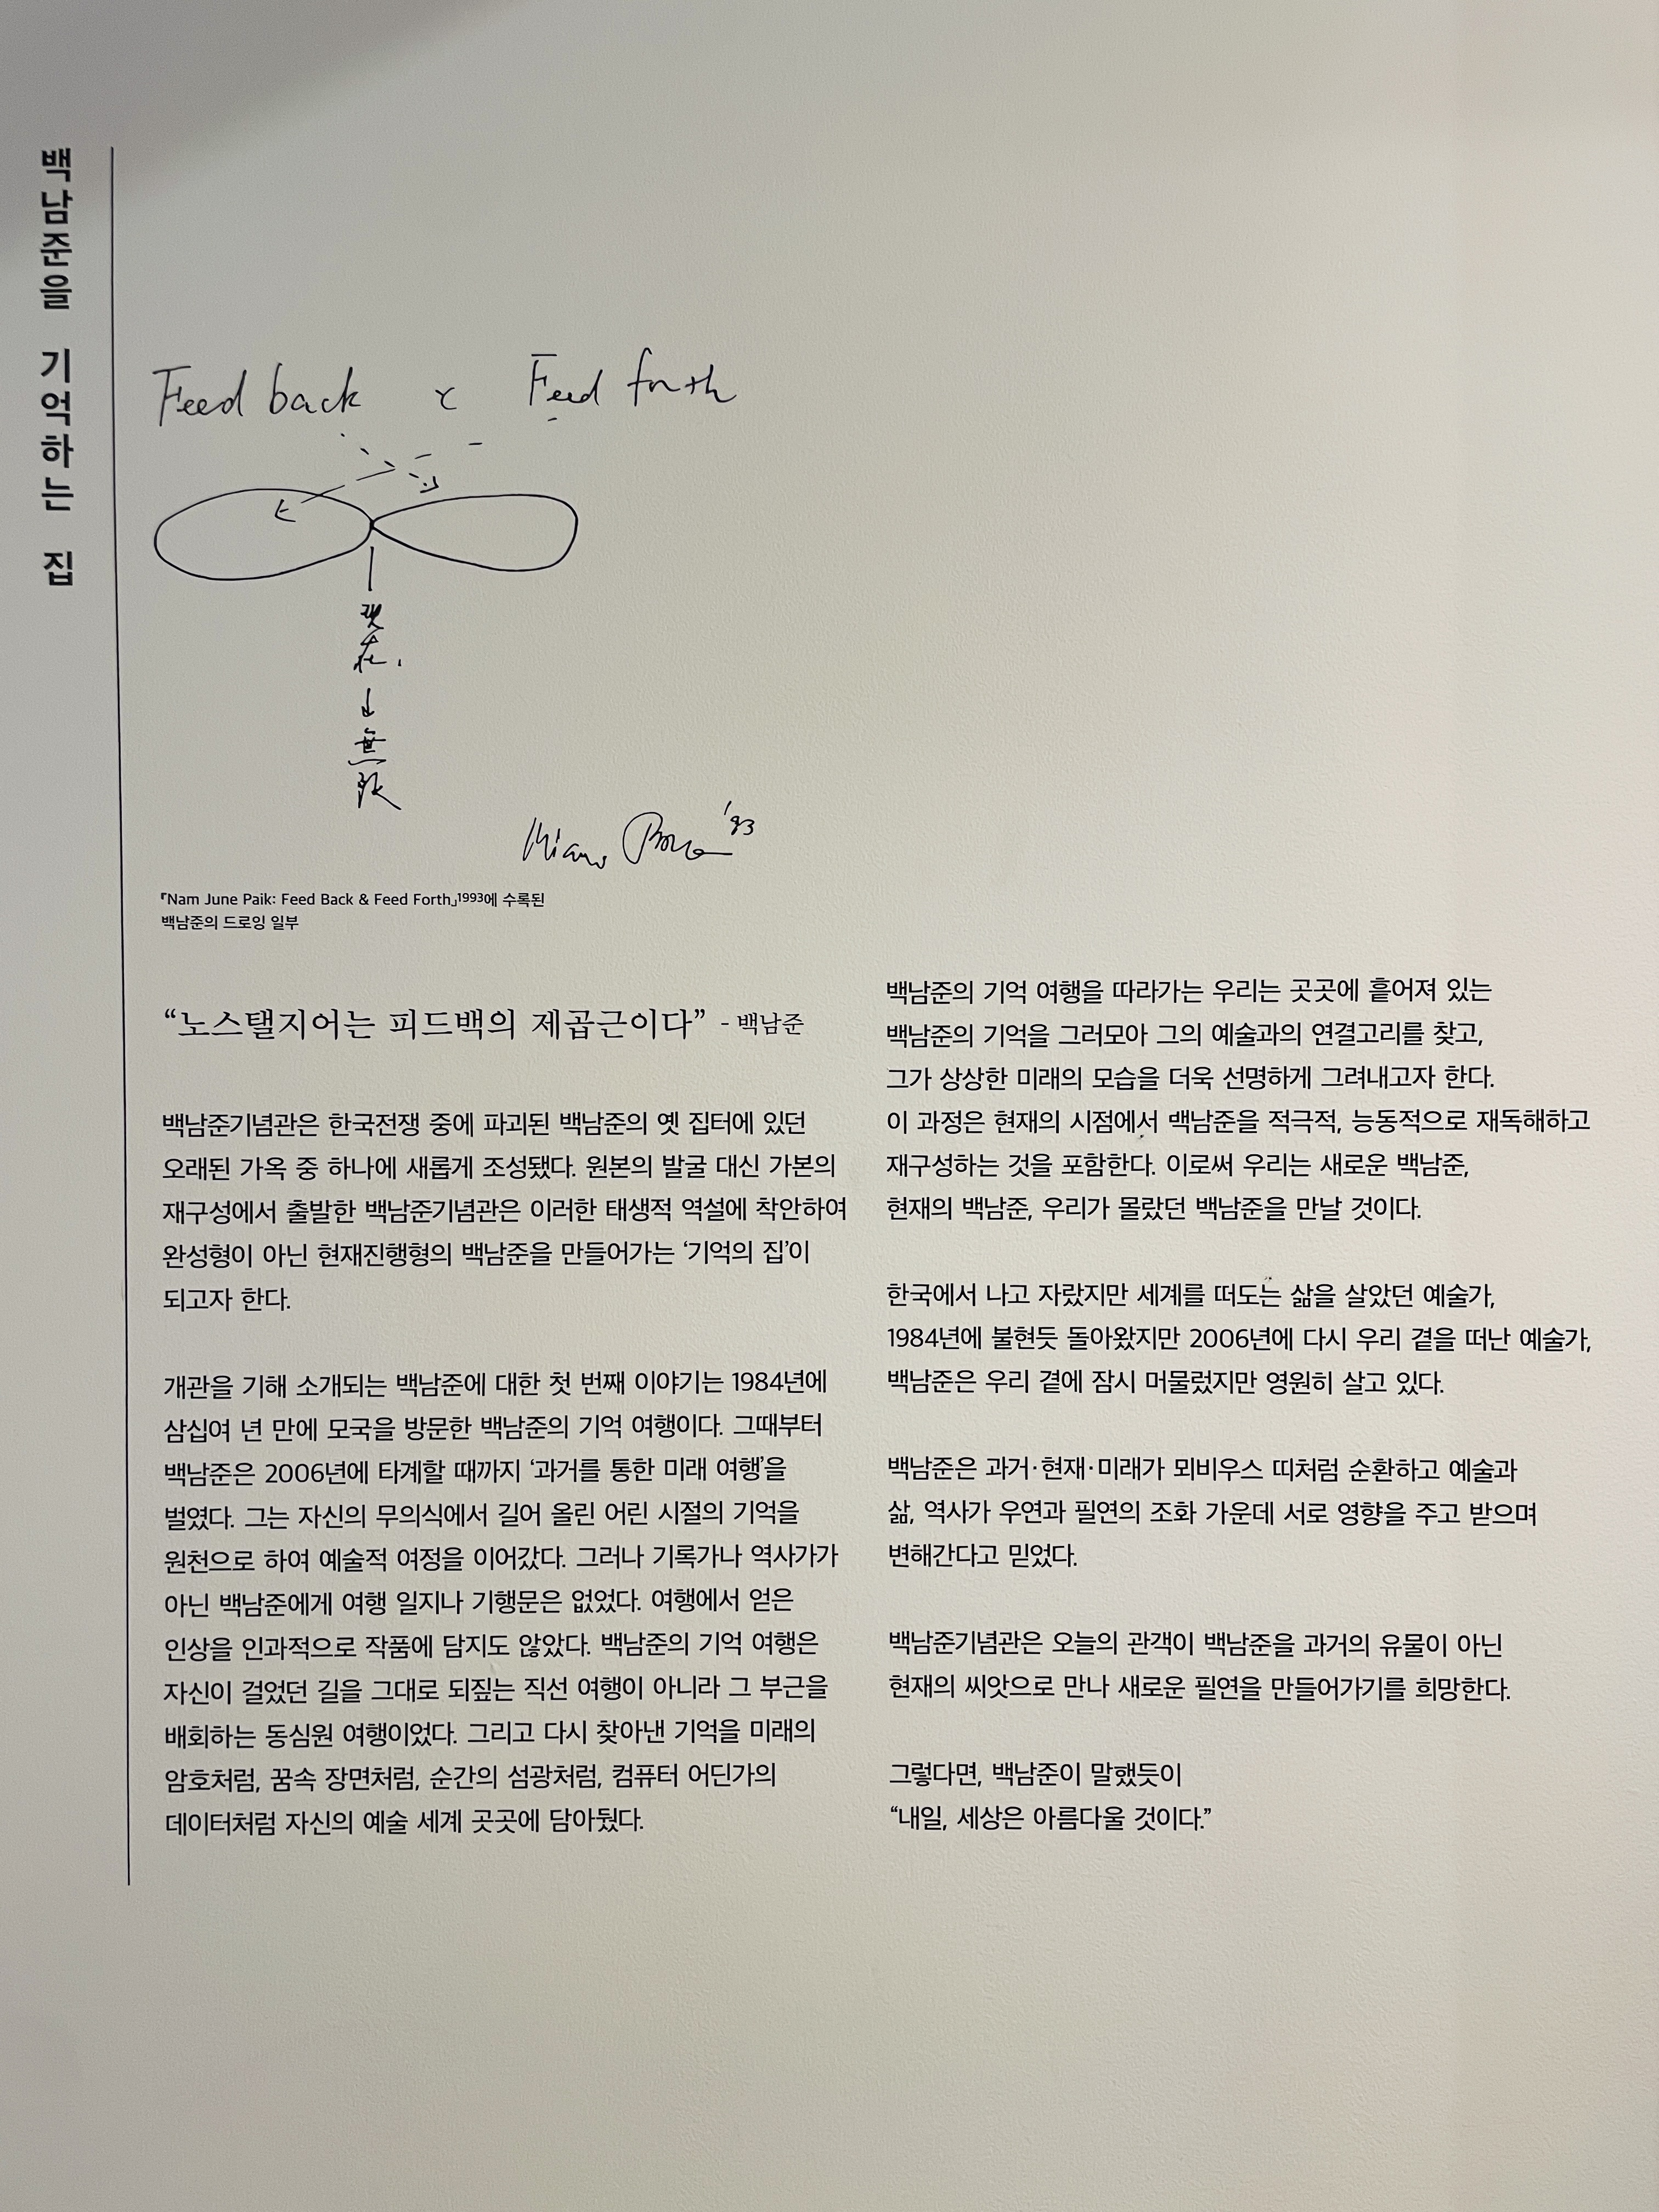 백남준을 기억하는 집
Feed back & Feed forth
現
在.
無
限
'93
『Nam June Paik: Feed Back & Feed Forth』1993에 수록된
백남준의 드로잉 일부
“노스탤지어는 피드백의 제곱근이다” - 백남준
백남준기념관은 한국전쟁 중에 파괴된 백남준의 옛 집터에 있던
오래된 가옥 중 하나에 새롭게 조성됐다. 원본의 발굴 대신 가본의
재구성에서 출발한 백남준기념관은 이러한 태생적 역설에 착안하여
완성형이 아닌 현재진행형의 백남준을 만들어가는 ‘기억의 집’이
되고자 한다.
개관을 기해 소개되는 백남준에 대한 첫 번째 이야기는 1984년에
삼십여 년 만에 모국을 방문한 백남준의 기억 여행이다. 그때부터
백남준은 2006년에 타계할 때까지 ‘과거를 통한 미래 여행’을
벌였다. 그는 자신의 무의식에서 길어 올린 어린 시절의 기억을
원천으로 하여 예술적 여정을 이어갔다. 그러나 기록가나 역사가가
아닌 백남준에게 여행 일지나 기행문은 없었다. 여행에서 얻은
인상을 인과적으로 작품에 담지도 않았다. 백남준의 기억 여행은
자신이 걸었던 길을 그대로 되짚는 직선 여행이 아니라 그 부근을
배회하는 동심원 여행이었다. 그리고 다시 찾아낸 기억을 미래의
암호처럼, 꿈속 장면처럼, 순간의 섬광처럼, 컴퓨터 어딘가의
데이터처럼 자신의 예술 세계 곳곳에 담아뒀다.
백남준의 기억 여행을 따라가는 우리는 곳곳에 흩어져 있는
백남준의 기억을 그러모아 그의 예술과의 연결고리를 찾고,
그가 상상한 미래의 모습을 더욱 선명하게 그려내고자 한다.
이 과정은 현재의 시점에서 백남준을 적극적, 능동적으로 재독해하고
재구성하는 것을 포함한다. 이로써 우리는 새로운 백남준,
현재의 백남준, 우리가 몰랐던 백남준을 만날 것이다.
한국에서 나고 자랐지만 세계를 떠도는 삶을 살았던 예술가,
1984년에 불현듯 돌아왔지만 2006년에 다시 우리 곁을 떠난 예술가,
백남준은 우리 곁에 잠시 머물렀지만 영원히 살고 있다.
백남준은 과거·현재·미래가 뫼비우스 띠처럼 순환하고 예술과
삶, 역사가 우연과 필연의 조화 가운데 서로 영향을 주고 받으며
변해간다고 믿었다.
백남준기념관은 오늘의 관객이 백남준을 과거의 유물이 아닌
현재의 씨앗으로 만나 새로운 필연을 만들어가기를 희망한다.
그렇다면, 백남준이 말했듯이
“내일, 세상은 아름다울 것이다.”